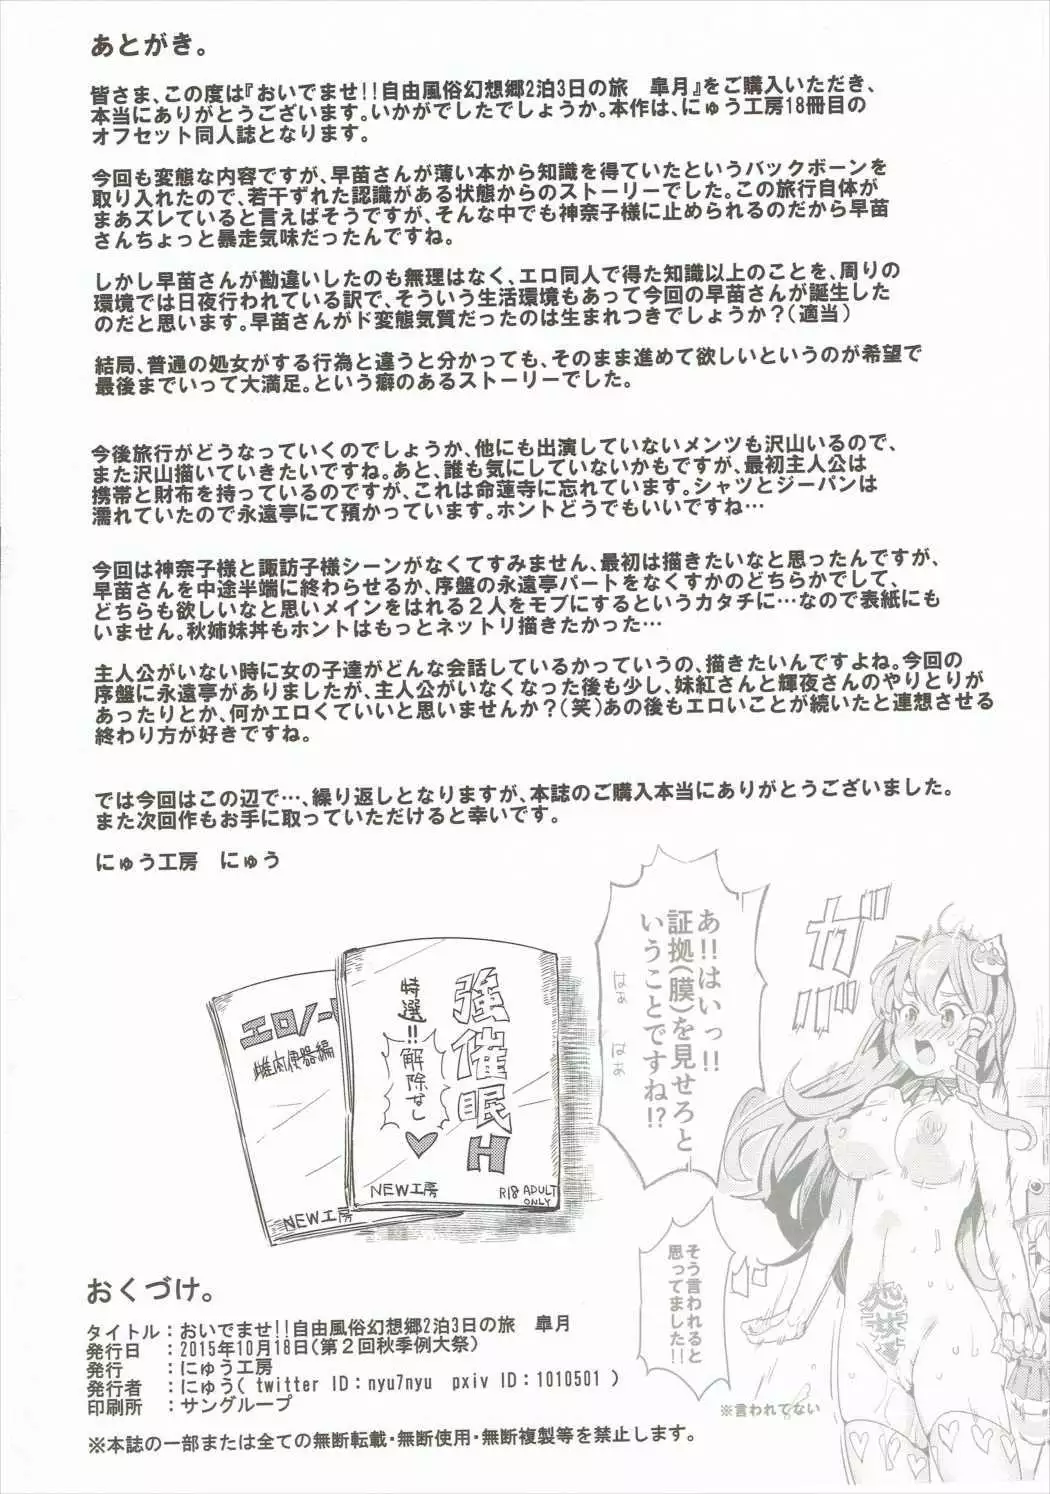 あとがき。
皆さま、この度は『おいでませ!!自由風俗幻想郷2泊3日の旅　皐月』をご購入いただき、
本当にありがとうございます。いかがでしたでしょうか。本作は、にゅう工房18冊目の
オフセット同人誌となります。
今回も変態な内容ですが、早苗さんが薄い本から知識を得ていたというバックボーンを
取り入れたので、若干ずれた認識がある状態からのストーリーでした。この旅行自体が
まあズレていると言えばそうですが、そんな中でも神奈子様に止められるのだから早苗
さんちょっと暴走気味だったんですね。
しかし早苗さんが勘違いしたのも無理はなく、エロ同人で得た知識以上のことを、周りの
環境では日夜行われている訳で、そういう生活環境もあって今回の早苗さんが誕生した
のだと思います。早苗さんがド変態気質だったのは生まれつきでしょうか？(適当)
結局、普通の処女がする行為と違うと分かっても、そのまま進めて欲しいというのが希望で
最後までいって大満足。という癖のあるストーリーでした。
今後旅行がどうなっていくのでしょうか、他にも出演していないメンツも沢山いるので、
また沢山描いていきたいですね。あと、誰も気にしていないかもですが、最初主人公は
携帯と財布を持っているのですが、これは命蓮寺に忘れています。シャツとジーパンは
濡れていたので永遠亭にて預かっています。ホントどうでもいいですね…
今回は神奈子様と諏訪子様シーンがなくてすみません、最初は描きたいなと思ったんですが、
早苗さんを中途半端に終わらせるか、序盤の永遠亭パートをなくすかのどちらかでして、
どちらも欲しいなと思いメインをはれる２人をモブにするというカタチに…なので表紙にも
いません。秋姉妹丼もホントはもっとネットリ描きたかった…
主人公がいない時に女の子達がどんな会話しているかっていうの、描きたいんですよね。今回の
序盤に永遠亭がありましたが、主人公がいなくなった後も少し、妹紅さんと輝夜さんのやりとりが
あったりとか、何かエロくていいと思いませんか？(笑)あの後もエロいことが続いたと連想させる
終わり方が好きですね。
では今回はこの辺で…、繰り返しとなりますが、本誌のご購入本当にありがとうございました。
また次回作もお手に取っていただけると幸いです。
にゅう工房　にゅう
ガバ
あ!!はいっ!!
証拠(膜)を見せろと
いうことですね!?
はぁ
はぁ
そう言われると
思ってました!!
※言われてない
処女
強催眠H
特選!!解除なし♥
NEW工房
R18 ADULT
ONLY
エロノー
雌肉便器編
NEW工房
おくづけ。
タイトル：おいでませ!!自由風俗幻想郷2泊3日の旅　皐月
発行日　：2015年10月18日(第２回秋季例大祭)
発行　　：にゅう工房
発行者　：にゅう( twitter ID：nyu7nyu　pxiv ID：1010501 )
印刷所　：サングループ
※本誌の一部または全ての無断転載・無断使用・無断複製等を禁止します。